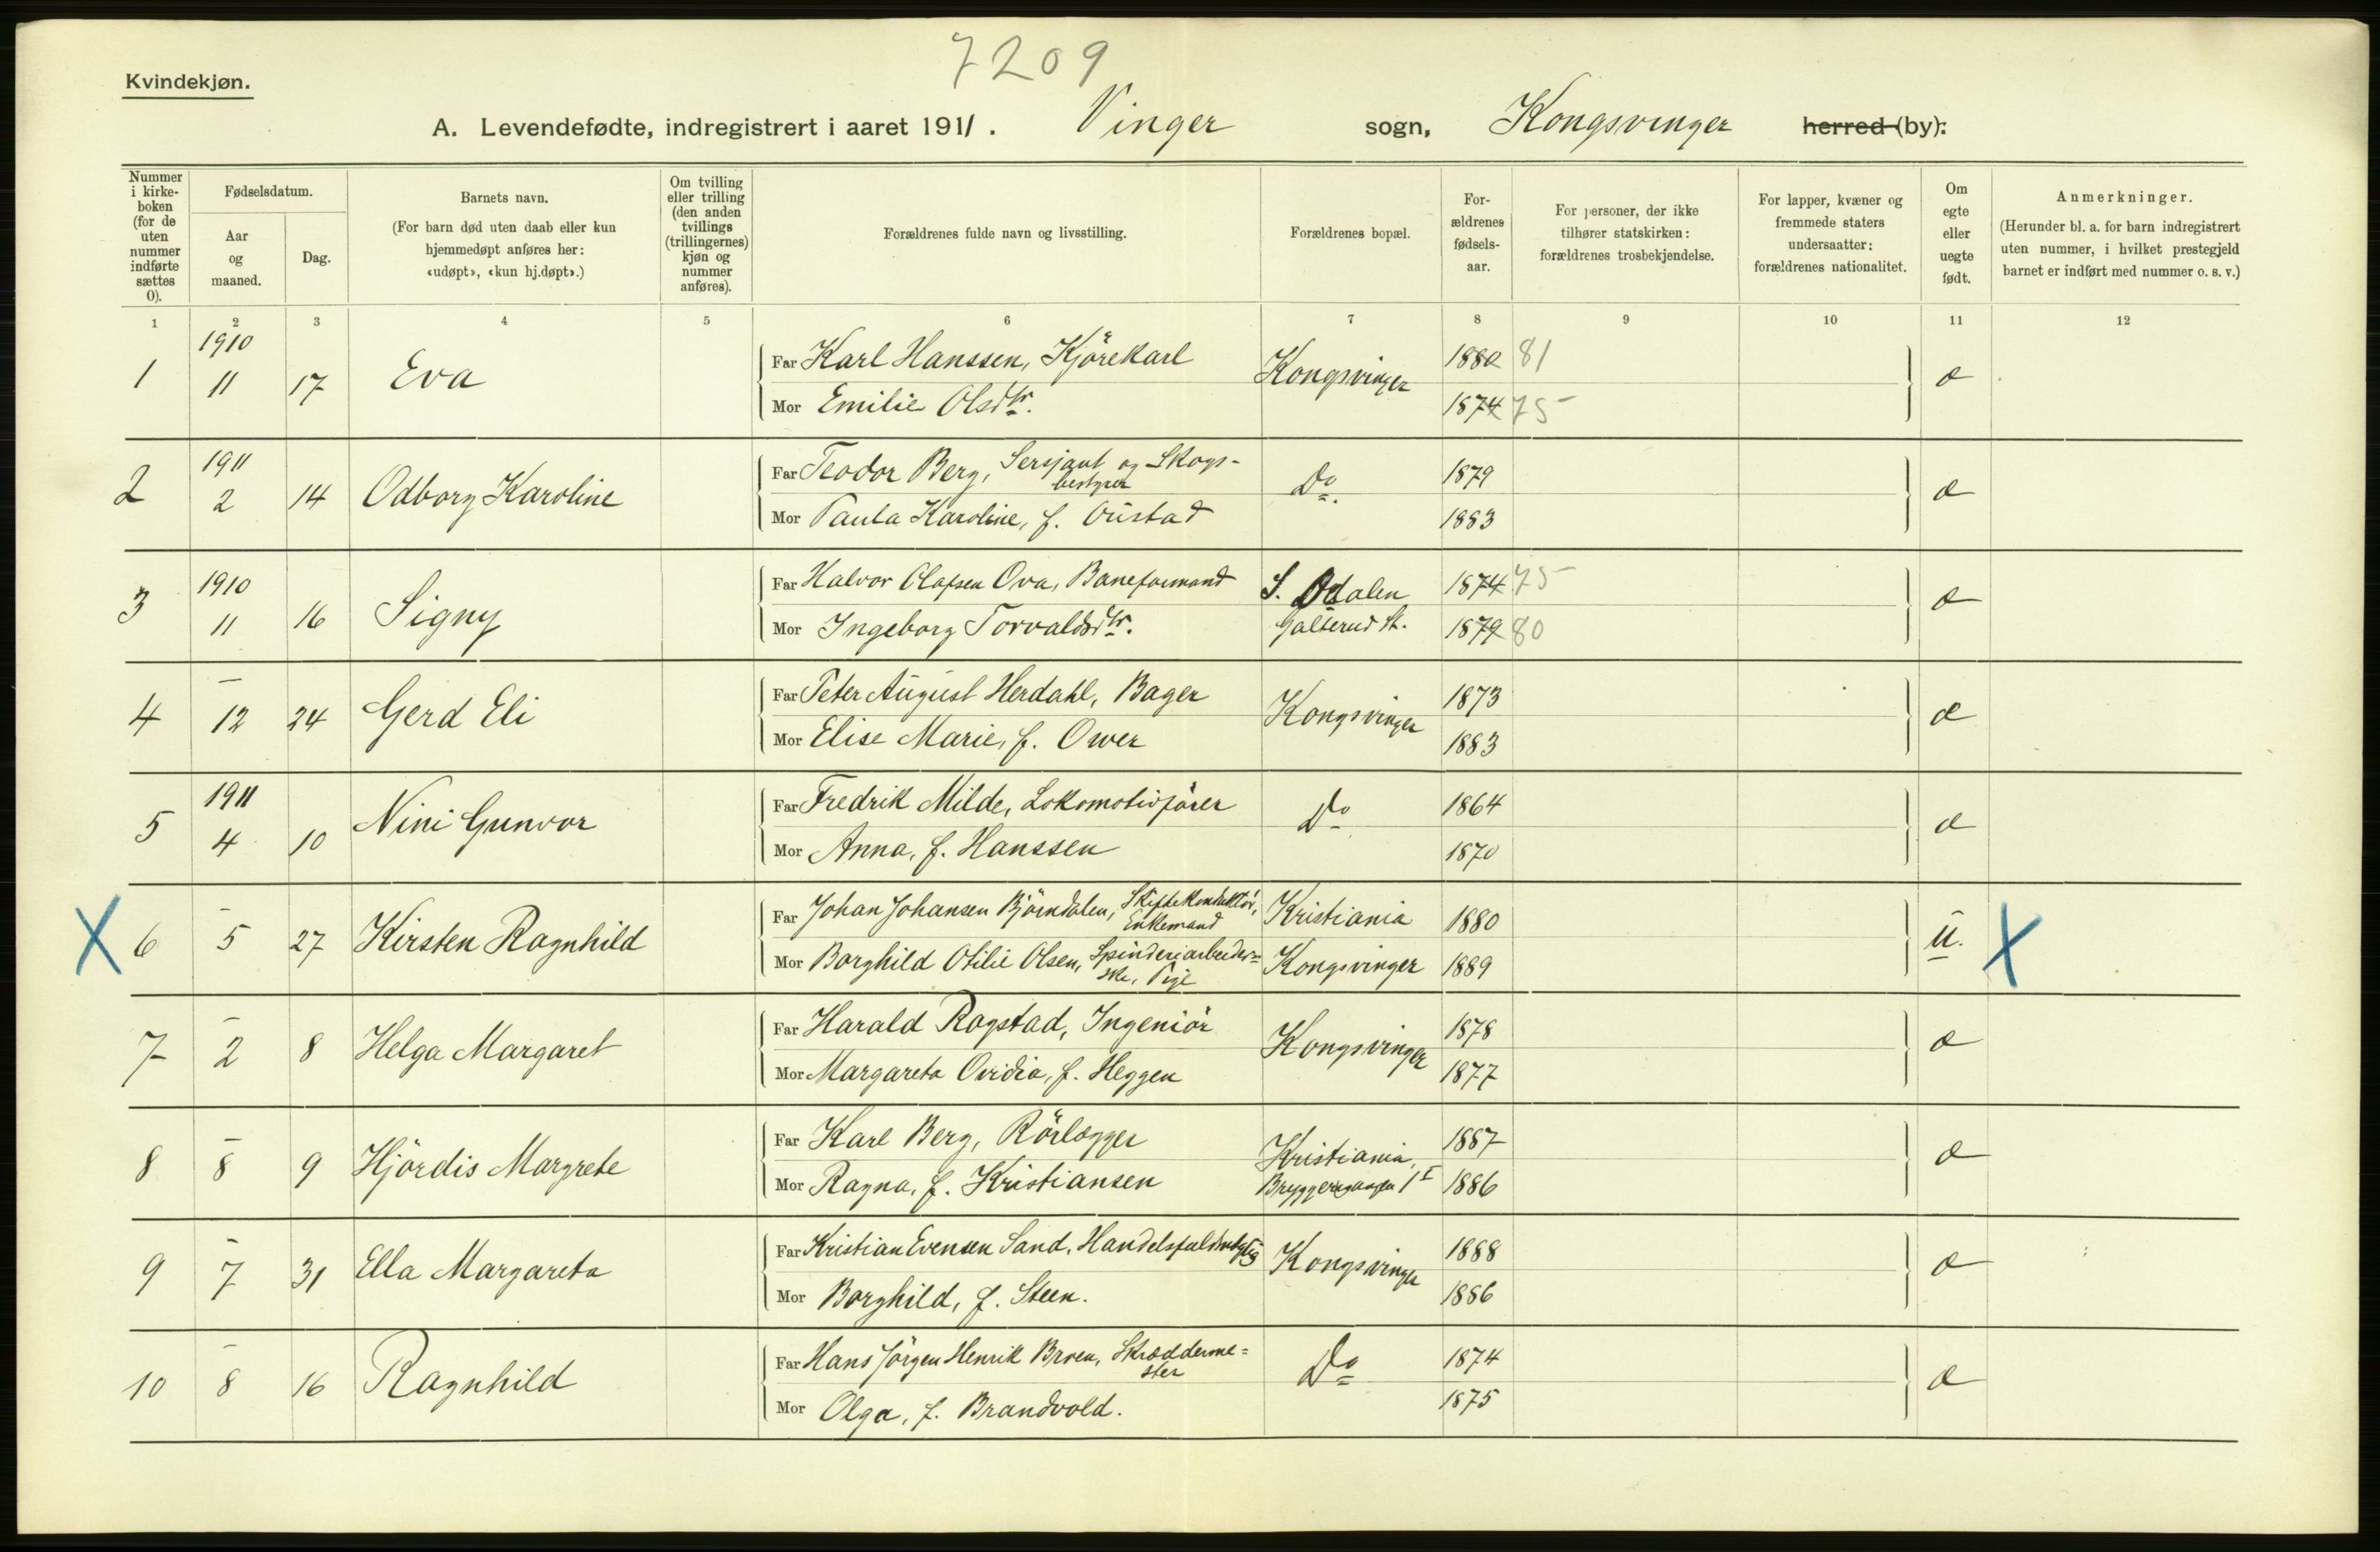 7209
Kvindekjøn.
A. Levendefødte, indregistrert i aaret 1911. Vinger sogn, Kongsvinger herred (by):
Nummer i kirke-boken (for de uten nummer indførte sættes 0).
Fødselsdatum.
Aar og maaned.
Dag.
Barnets navn.
(For barn død uten daab eller kun hjemmedøpt anføres her: «udøpt», «kun hj.døpt».)
Om tvilling eller trilling (den anden tvillings (trillingernes) kjøn og nummer anføres).
Forældrenes fulde navn og livsstilling.
Forældrenes bopæl.
For-ældrenes fødsels-aar.
For personer, der ikke tilhører statskirken: forældrenes trosbekjendelse.
For lapper, kvæner og fremmede staters undersaatter: forældrenes nationalitet.
Om egte eller uegte født.
Anmerkninger.
(Herunder bl. a. for barn indregistrert uten nummer, i hvilket prestegjeld barnet er indført med nummer o. s. v.)
1 2 3 4 5 6 7 8 9 10 11 12
1 1910 11 17 Eva
Far Karl Hanssen, Kjörekarl Kongsvinger 1880 81 æ
Mor Emilie Olsdtr. 1874 75
2 1911 2 14 Odborg Karoline
Far Teodor Berg, Sersjant og Skogs-
bestyrer Do. 1879 æ
Mor Paula Karoline, f. Oustad 1883
3 1910 11 16 Signy
Far Halvor Olafsen Ova, Baneformand S. Odalen 1874 75 æ
Mor Ingeborg Torvaldsdtr. Galterud St. 1879 80
4 — 12 24 Gerd Eli
Far Peter August Herdahl, Bager Kongsvinger 1873 æ
Mor Elise Marie, f. Ower 1883
5 1911 4 10 Nini Gunvor
Far Fredrik Milde, Lokomotivförer Do 1864 æ
Mor Anna, f. Hanssen 1870
X 6 — 5 27 Kirsten Ragnhild
Far Johan Johansen Björndalen, Skiftekonduktör,
Enkemand Kristiania 1880 u. X
Mor Borghild Otilie Olsen, Spinderiarbeider=
ske, Pige Kongsvinger 1889
7 — 2 8 Helga Margaret
Far Harald Rogstad, Ingeniör Kongsvinger 1878 æ
Mor Margareta Ovidia, f. Heggen 1877
8 — 8 9 Hjördis Margrete
Far Karl Berg, Rörlægger Kristiania, 1887 æ
Mor Ragna, f. Kristiansen Bryggerigaten 1 I 1886
9 — 7 31 Ella Margareta
Far Kristian Evensen Sand, Handelsfuldmægtig Kongsvinger 1888 æ
Mor Borghild, f. Steen. 1886
10 — 8 16 Ragnhild
Far Hans Jörgen Henrik Broen, Skrædderme=
ster Do 1874 æ
Mor Olga, f. Brandvold. 1875